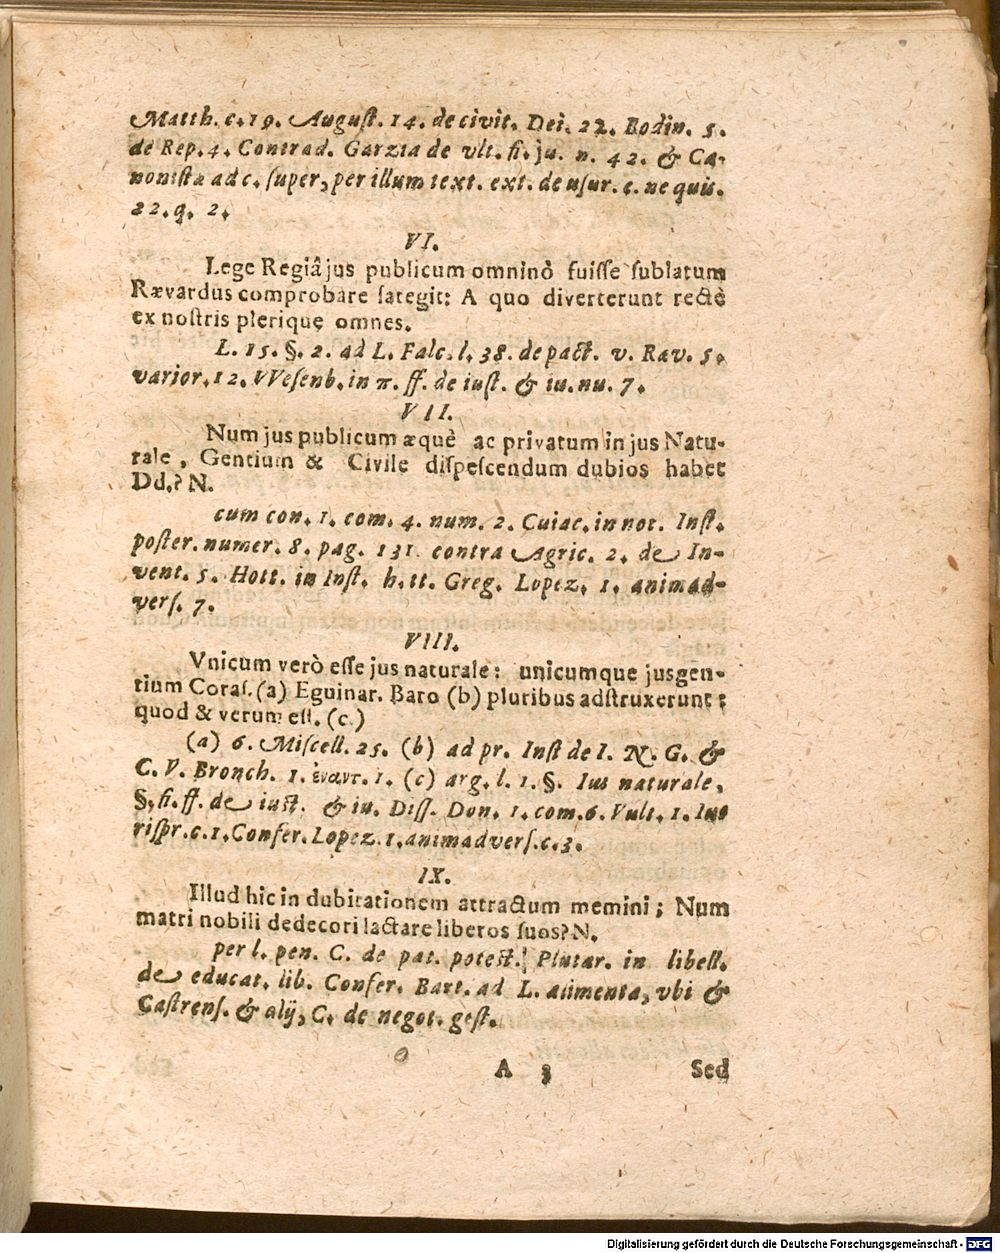 Matth. c. 19. August. 14. de civit. Dei. 22. Bodin. 5.
de Rep. 4. Contrad. Garzia de vlt. fi. ju. n. 42. & Ca-
nonista ad c. super, per illum text. ext. de usur. c. ne quis.
22. q. 2.
VI.
Lege Regiâ jus publicum omninò fuisse sublatum
Rævardus comprobare sategit: A quo diverterunt rectè
ex nostris plerique omnes.
L. 15. §. 2. ad L. Falc. l. 38. de pact. v. Rav. 5.
varior. 12. VVesenb. in π. ff. de iust. & iu. nu. 7.
VII.
Num jus publicum æquè ac privatum in jus Natu-
rale, Gentium & Civile dispescendum dubios habet
Dd.? N.
cum con. 1. com. 4. num. 2. Cuiac. in not. Inst.
poster. numer. 8. pag. 131. contra Agric. 2. de In-
vent. 5. Hott. in Inst. h. tt. Greg. Lopez. 1. animad-
vers. 7.
VIII.
Vnicum verò esse jus naturale: unicumque jus gen-
tium Coras. (a) Eguinar. Baro (b) pluribus adstruxerunt:
quod & verum est. (c)
(a) 6. Miscell. 25. (b) ad pr. Inst de I. N. G. &
C. V. Bronch. 1. ἐναντ. 1. (c) arg. l. 1. §. Ius naturale,
§. fi. ff. de iust. & iu. Diss. Don. 1. com. 6. Vult. 1. Iu
rispr. c. 1. Confer. Lopez. 1. animadvers. c. 3.
IX.
Illud hic in dubitationem attractum memini; Num
matri nobili dedecori lactare liberos suos? N.
per l. pen. C. de pat. potest. Plutar. in libell.
de educat. lib. Confer. Bart. ad L. alimenta, vbi &
Castrens. & alij, C. de negot. gest.
A 3 Sed
Digitalisierung gefördert durch die Deutsche Forschungsgemeinschaft - DFG